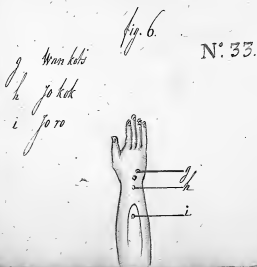 fig. 6.
N.º 33.
g Wankots
h Jokok
i Joro
g
h
i